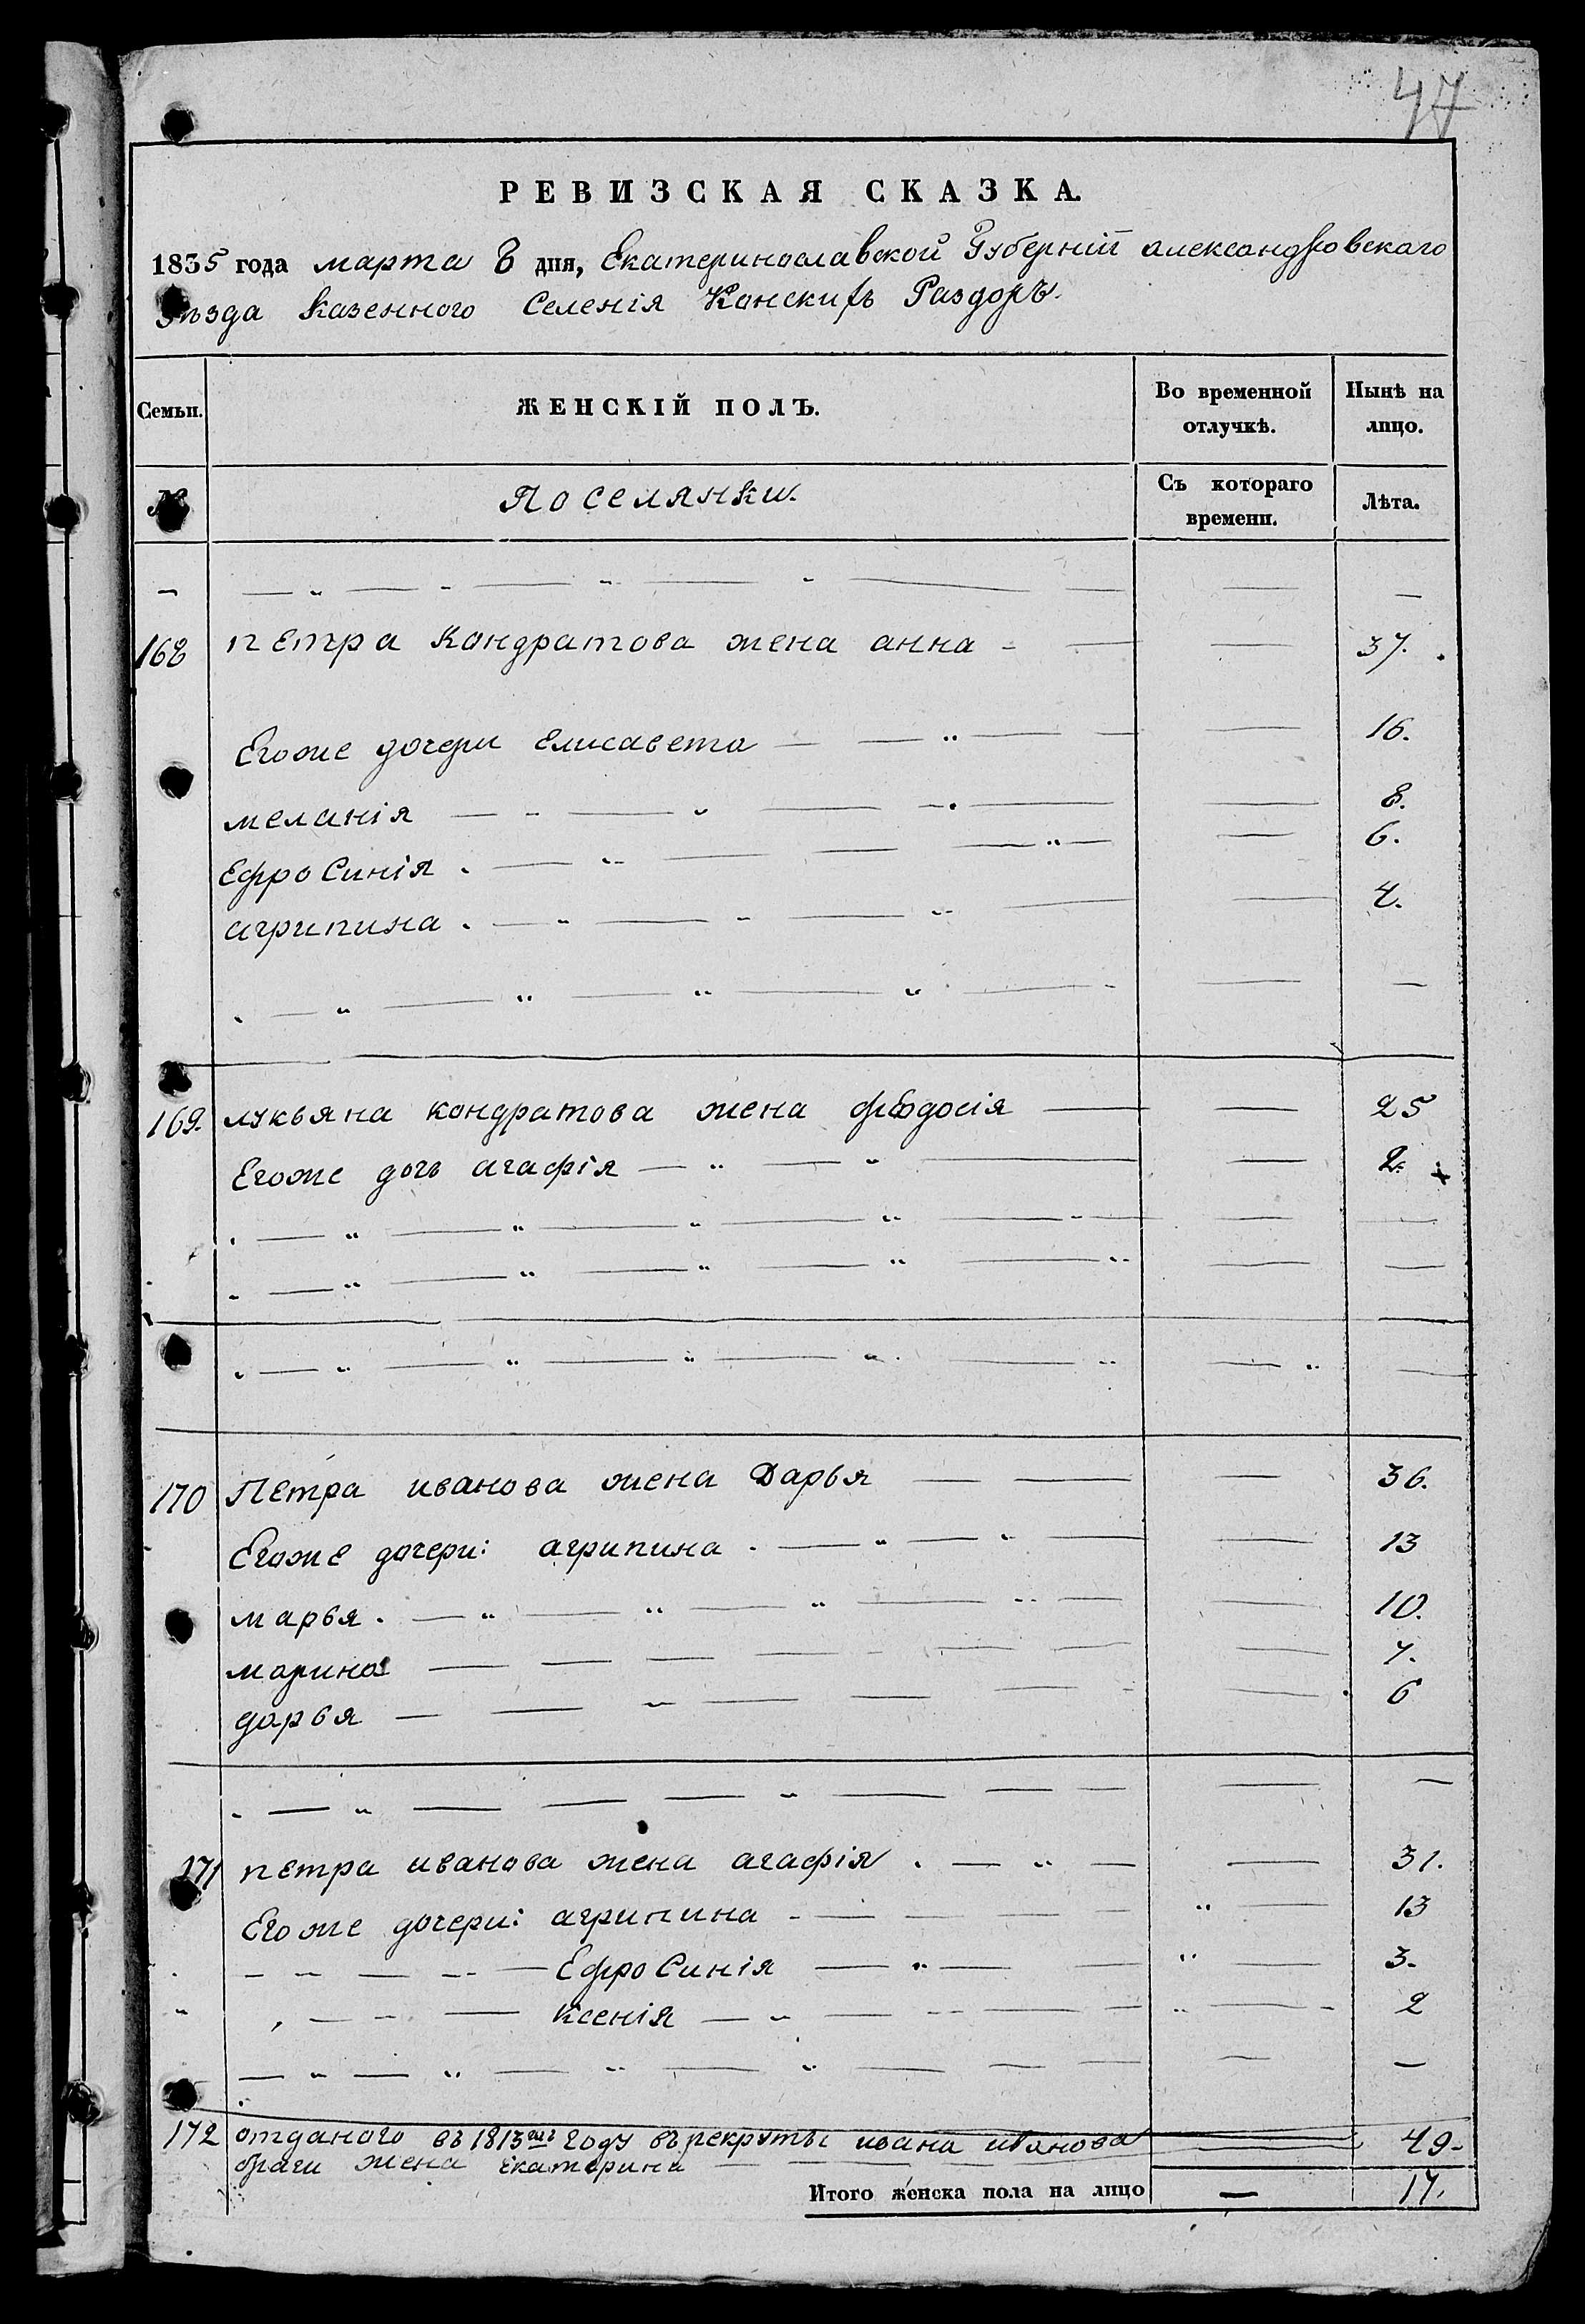 47
РЕВИЗСКАЯ СКАЗКА.
1835 года марта 8 дня, Екатеринославской Губерніи александровского
уѣзда казенного Селенія Конскихъ Раздоръ.
Семьи. ЖЕНСКІЙ ПОЛЪ. Во временной отлучкѣ. Нынѣ на лицо.
№ Поселянки. Съ котораго времени. Лѣта.
168 петра Кондратова жена анна 37.
Егоже дочери Елисавета 16.
меланія 8.
Ефросинія 6.
агрипина 4.
169. лукьяна кондратова жена феодосія 25
Егоже дочь агафія 2.
170 Петра иванова жена Дарья 36.
Егоже дочери: агрипина 13
марья 10.
марина 7.
дарья 6
171 петра иванова жена агафія 31.
Егоже дочери: агрипина 13
Ефросинія 3.
Ксенія 2
172 отданого въ 1813мъ году въ рекруты ивана иванова
жена екатерина 49
Итого женска пола на лицо 17.